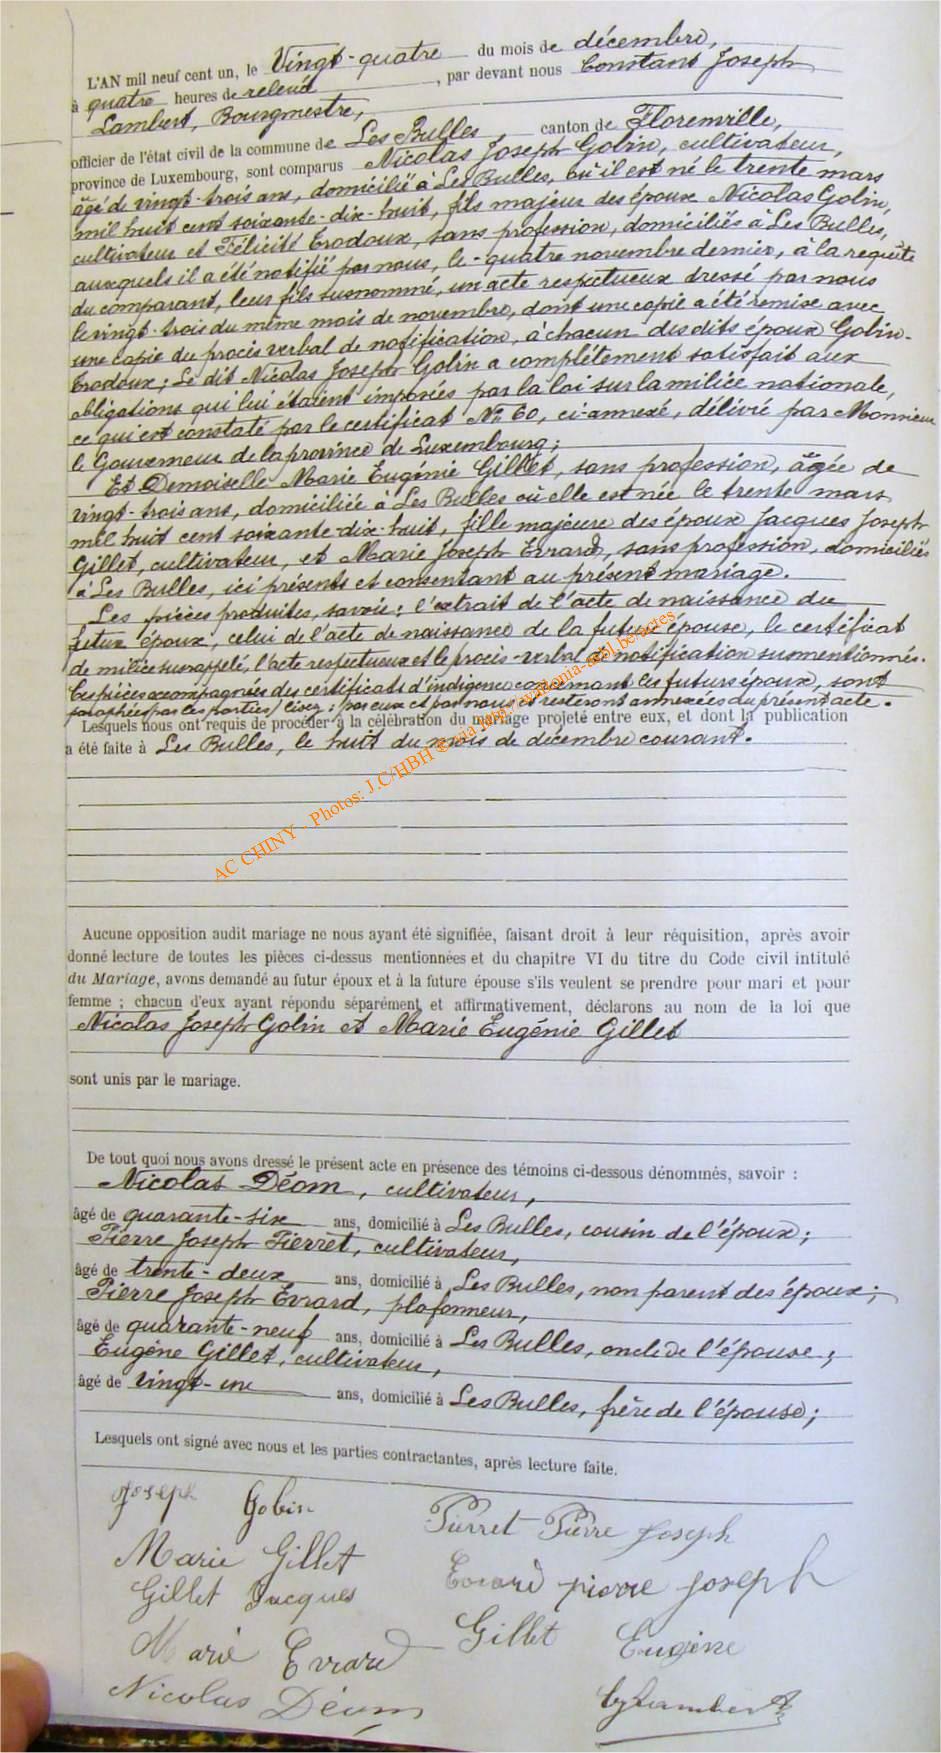 L'AN mil neuf cent un, le Vingt-quatre du mois de décembre,
à quatre heures de relevée, par devant nous Constant Joseph
Lambert, Bourgmestre,
officier de l'état civil de la commune de Les Bulles, canton de Florenville,
province de Luxembourg, sont comparus Nicolas Joseph Gobin, cultivateur,
âgé de vingt-trois ans, domicilié à Les Bulles, où il est né le trente mars
mil huit cent soixante-dix-huit, fils majeur des époux Nicolas Gobin,
cultivateur et Félicité Trodoux, sans profession, domiciliés à Les Bulles,
auxquels il a été notifié par nous, le quatre novembre dernier, à la requête
du comparant, leur fils susnommé, un acte respectueux dressé par nous
le vingt-trois du même mois de novembre, dont une copie a été remise avec
une copie du procès verbal de notification, à chacun des dits époux Gobin-
Trodoux; Le dit Nicolas Joseph Gobin a complétement satisfait aux
obligations qui lui étaient imposées par la loi sur la milice nationale,
ce qui est constaté par le certificat No 60, ci-annexé, délivré par Monsieur
le Gouverneur de la province de Luxembourg;
Et Demoiselle Marie Eugénie Gillet, sans profession, âgée de
vingt-trois ans, domiciliée à Les Bulles où elle est née le trente mars
mil huit cent soixante-dix-huit, fille majeure des époux Jacques Joseph
Gillet, cultivateur, et Marie Joseph Evrard, sans profession, domiciliés
à Les Bulles, ici présents et consentant au présent mariage.
Les pièces produites, savoir: l'extrait de l'acte de naissance du
futur époux, celui de l'acte de naissance de la future épouse, le certificat
de milice susrappelé, l'acte respectueux et le procès-verbal de notification susmentionnés.
Ces pièces accompagnées des certificats d'indigence concernant les futurs époux, sont
paraphées par les parties; par eux et par nous et resteront annexées du présent acte.
Lesquels nous ont requis de procéder à la célébration du mariage projeté entre eux, et dont la publication
a été faite à Les Bulles, le huit du mois de décembre courant.
AC CHINY - Photos: J.C/HBH ® via http://wallonia-asbl.be/actes
Aucune opposition audit mariage ne nous ayant été signifiée, faisant droit à leur réquisition, après avoir
donné lecture de toutes les pièces ci-dessus mentionnées et du chapitre VI du titre du Code civil intitulé
du Mariage, avons demandé au futur époux et à la future épouse s'ils veulent se prendre pour mari et pour
femme ; chacun d'eux ayant répondu séparément et affirmativement, déclarons au nom de la loi que
Nicolas Joseph Gobin et Marie Eugénie Gillet
sont unis par le mariage.
De tout quoi nous avons dressé le présent acte en présence des témoins ci-dessous dénommés, savoir :
Nicolas Déom, cultivateur,
âgé de quarante-six ans, domicilié à Les Bulles, cousin de l'époux;
Pierre Joseph Pierret, cultivateur,
âgé de trente-deux ans, domicilié à Les Bulles, non parent des époux;
Pierre Joseph Evrard, plafonneur,
âgé de quarante-neuf ans, domicilié à Les Bulles, oncle de l'épouse;
Eugène Gillet, cultivateur,
âgé de vingt-un ans, domicilié à Les Bulles, frère de l'épouse;
Lesquels ont signé avec nous et les parties contractantes, après lecture faite.
Joseph Gobin
Pierret Pierre Joseph
Marie Gillet
Evrard pierre joseph
Gillet Jacques
Gillet Eugène
Marie Evrard
Nicolas Déom
CJLambert